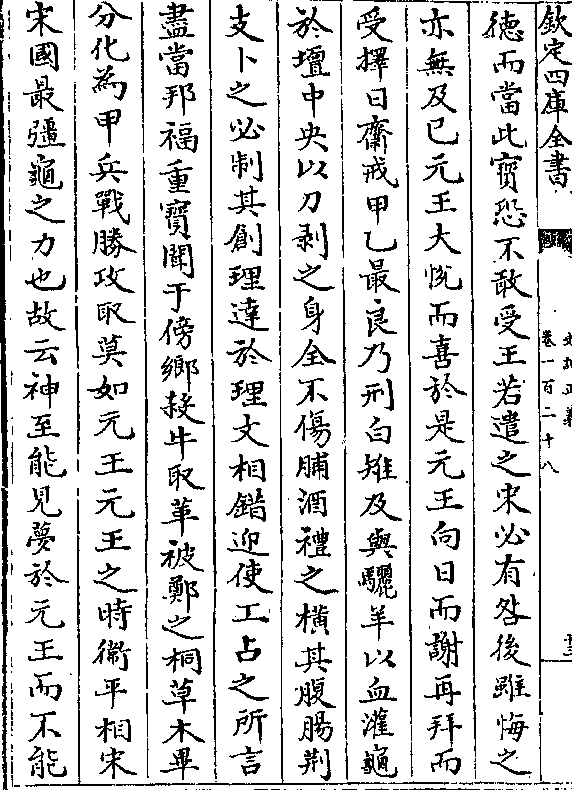 欽定四庫全書
史記正義
卷一百二十八
德而當此寳恐不敢受王若遣之宋必有咎後雖悔之
亦無及已元王大悅而喜於是元王向日而謝再拜而
受擇日齋戒甲乙最良乃刑白雉及與驪羊以血灌龜
於壇中央以刀剥之身全不傷脯酒禮之横其腹腸荆
支卜之必制其創理達於理文相錯迎使工占之所言
盡當邦福重寳聞于傍鄉殺牛取革被鄭之桐草木畢
分化為甲兵戰勝攻取莫如元王元王之時衞平相宋
宋國最彊龜之力也故云神至能見夢於元王而不能